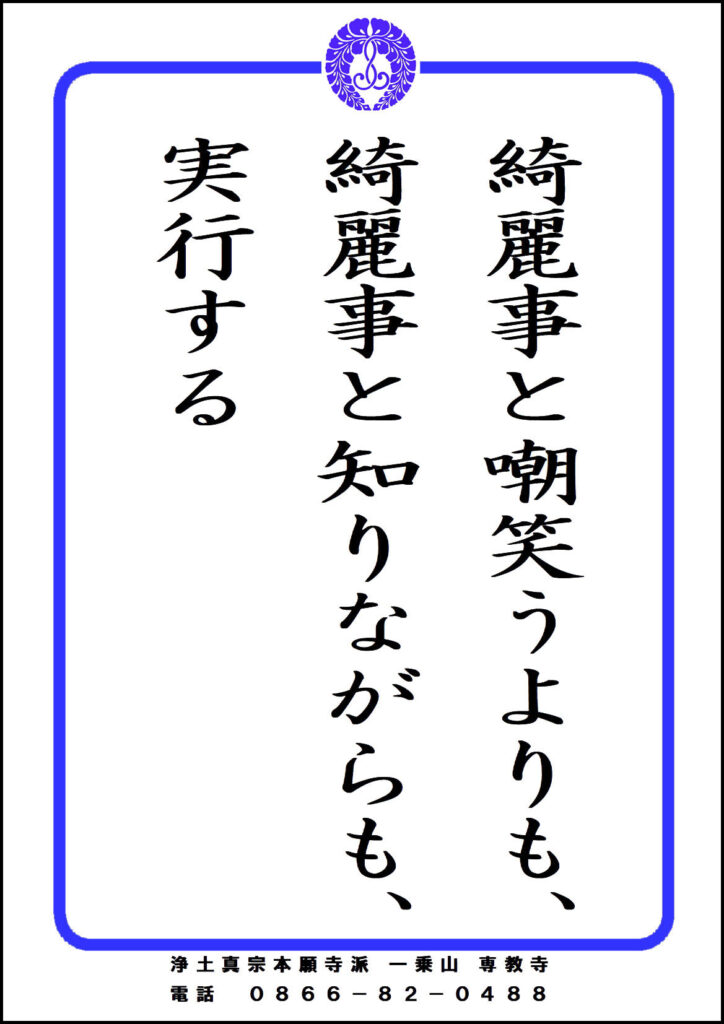 綺麗事と嘲笑うよりも、
綺麗事と知りながらも、
実行する
浄土真宗本願寺派 一乗山 専教寺
電話 0866-82-0488